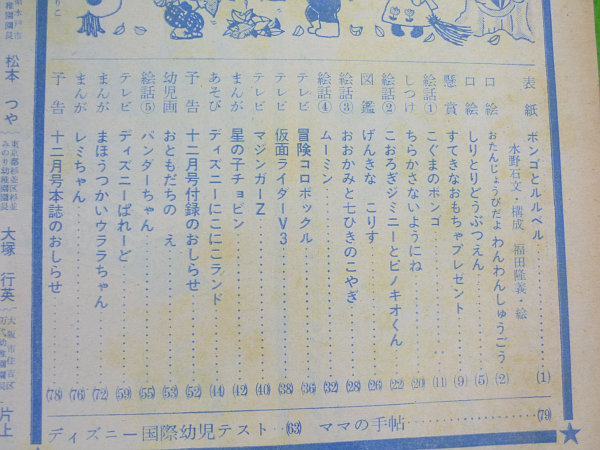 表紙 ボンゴとルルベル (1)
水野石文・構成 福田隆義・絵
口絵 おたんじょうびだよ わんわんしゅうごう (2)
口絵 しりとりどうぶつえん (5)
懸賞 すてきなおもちゃプレゼント (9)
絵話① こぐまのボンゴ (11)
しつけ ちらかさないようにね (20)
絵話② こおろぎジミニーとピノキオくん (22)
図鑑 げんきな こりす (26)
絵話③ おおかみと七ひきのこやぎ (28)
絵話④ ムーミン (32)
テレビ 冒険コロボックル (36)
テレビ 仮面ライダーV3 (38)
テレビ マジンガーZ (40)
まんが 星の子チョビン (42)
あそび ディズニーにこにこランド (44)
予告 十二月号付録のおしらせ (52)
幼児画 おともだちの え (53)
絵話⑤ パンダーちゃん (55)
テレビ ディズニーぱれーど (59)
まんが まほうつかいウララちゃん (72)
まんが レミちゃん (76)
予告 十二月号本誌のおしらせ (78)
ディズニー国際幼児テスト (63) ママの手帖 (79)
水戸市
稚園園長
松本 つや
東京都杉並区杉並
みのり幼稚園園長
大塚 行英
大阪市住吉区
万代幼稚園園長
片上